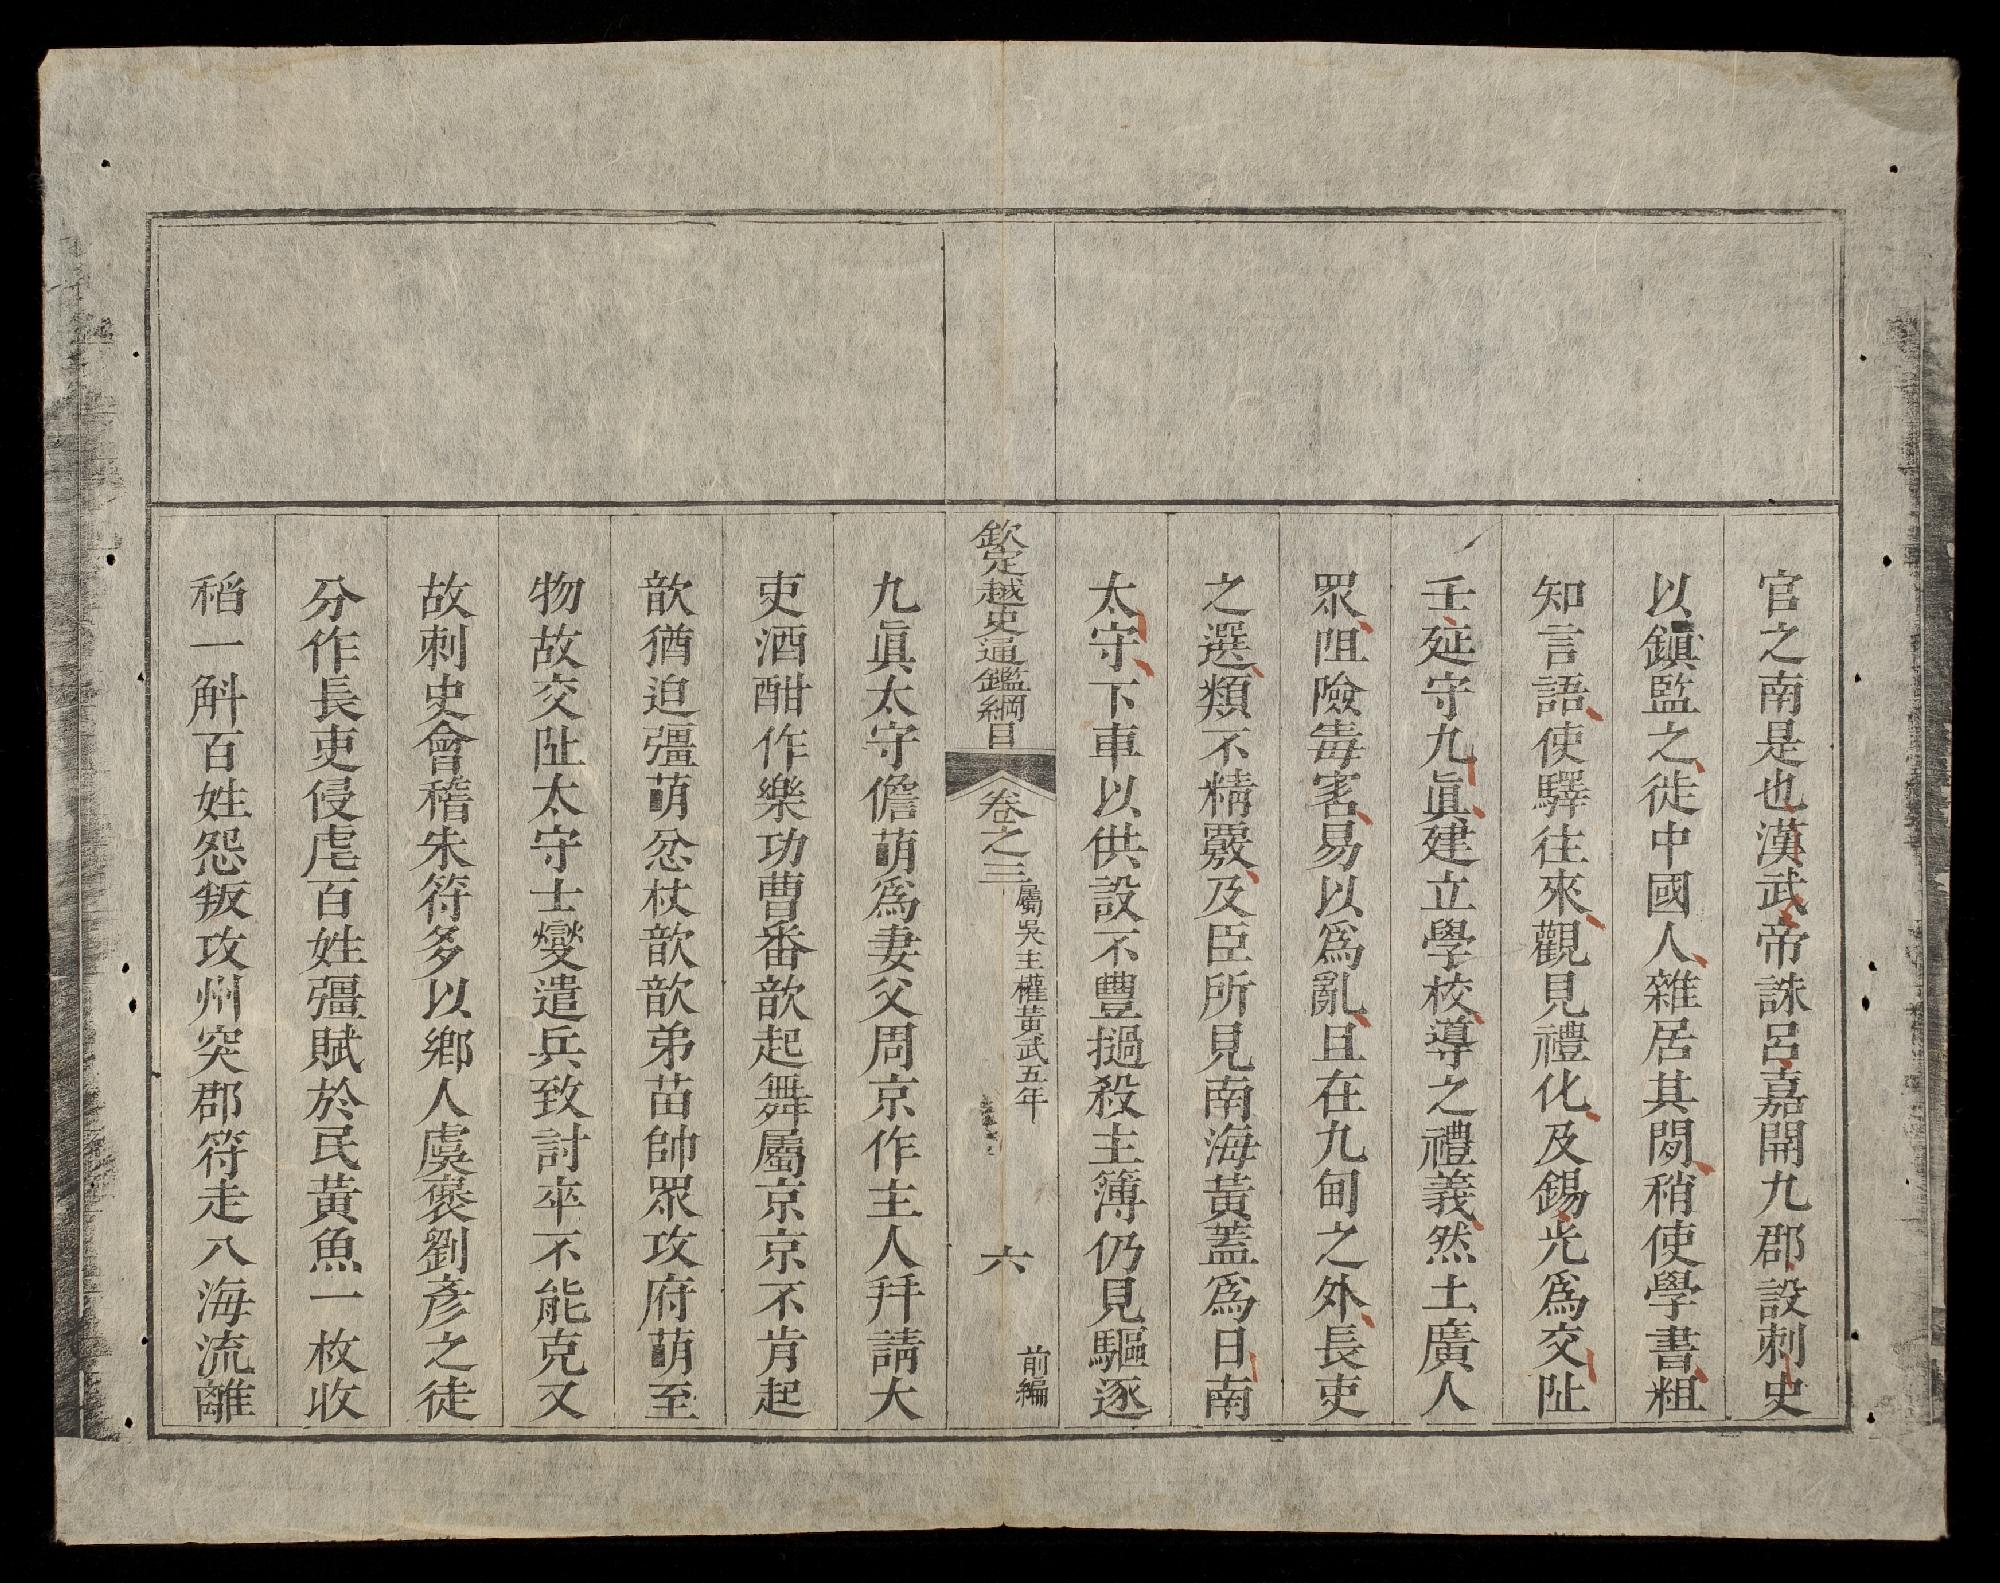 官之南是也漢武帝誅呂嘉開九郡設刺史
以鎭監之徙中國人雜居其間稍使學書粗
知言語使驛往來觀見禮化及錫光爲交阯
壬延守九眞建立學校導之禮義然土廣人
眾阻險毒害易以爲亂且在九甸之外長吏
之選類不精覈及臣所見南海黃蓋爲日南
太守下車以供設不豐撾殺主簿仍見驅逐
欽定越史通鑑綱目
卷之三
屬吳主權黃武五年
六
前編
九眞太守儋萌爲妻父周京作主人拜請大
吏酒酣作樂功曹番歆起舞屬京京不肯起
歆猶迫彊萌忿杖歆歆弟苗帥眾攻府萌至
物故交阯太守士燮遣兵致討卒不能克又
故刺史會稽朱符多以鄉人虞褒劉彥之徒
分作長吏侵虐百姓彊賦於民黃魚一枚收
稻一斛百姓怨叛攻州突郡符走入海流離